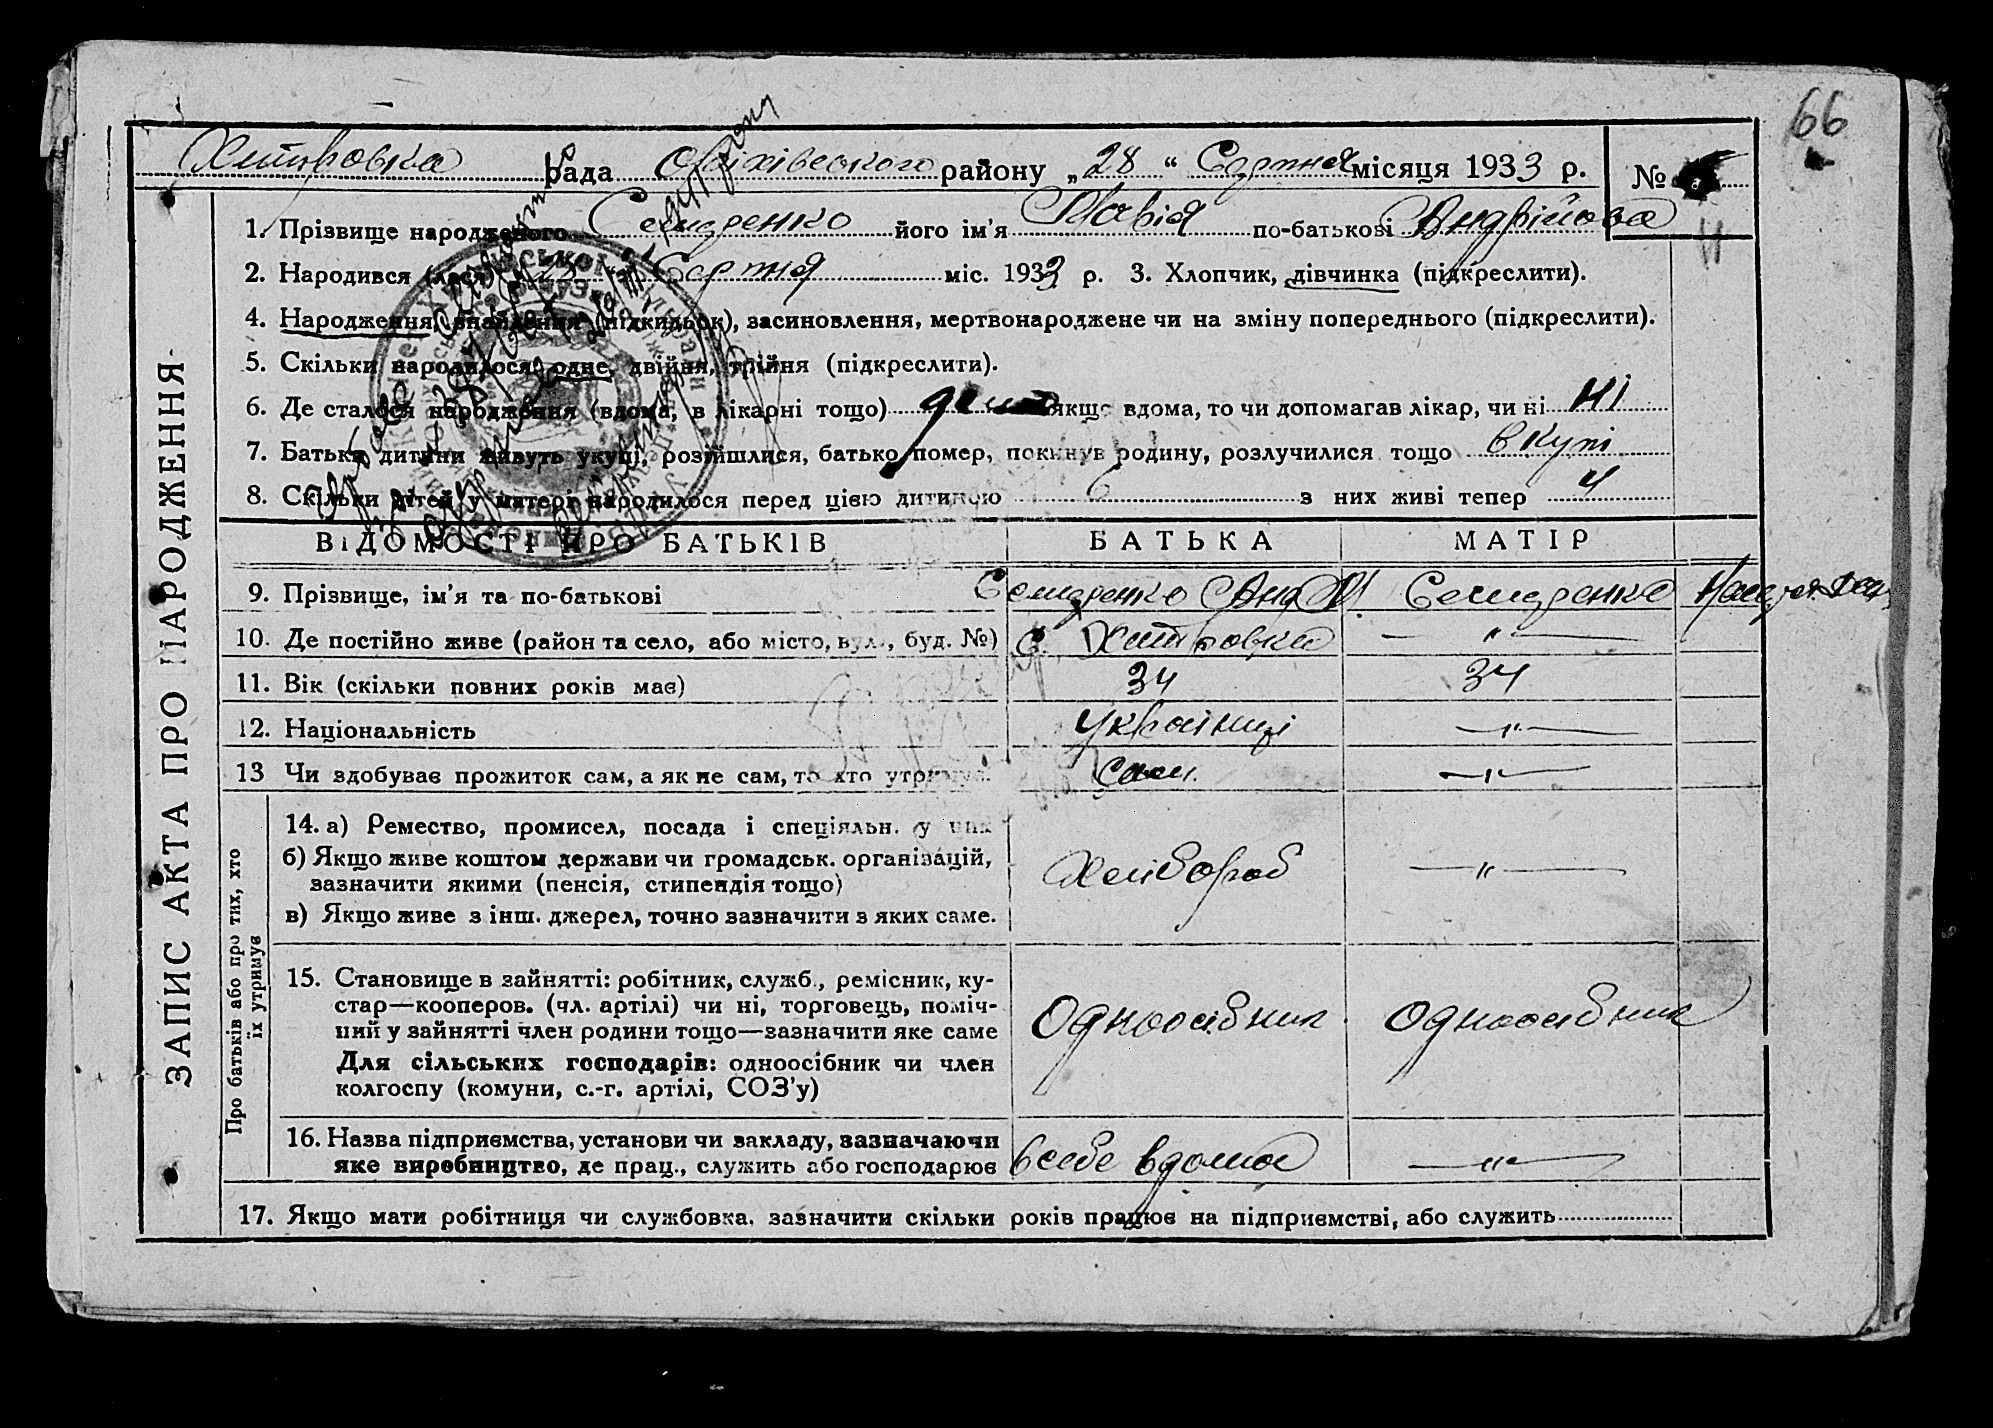 66
Хитровка рада району „28“ Серпня місяця 1933 р. №
11
ЗАПИС АКТА ПРО НАРОДЖЕННЯ
1. Прізвище народженого його ім'я Марія по-батькові Андрійовна
2. Народився (лася) Серпня міс. 1933 р. 3. Хлопчик, дівчинка (підкреслити).
4. Народження, знайдення (підкидьок), засиновлення, мертвонароджене чи на зміну попереднього (підкреслити).
5. Скільки народилося: одне, двійня, трійня (підкреслити).
6. Де сталося народження (вдома, в лікарні тощо) дома якщо вдома, то чи допомагав лікар, чи ні ні
7. Батьки дитини живуть укупі, розійшлися, батько помер, покинув родину, розлучилися тощо вкупі
8. Скільки дітей у матері народилося перед цією дитиною 6 з них живі тепер 4
ВІДОМОСТІ ПРО БАТЬКІВ БАТЬКА МАТІР
9. Прізвище, ім'я та по-батькові
10. Де постійно живе (район та село, або місто, вул., буд. №) с. Хитровка —"—
11. Вік (скільки повних років має) 34 34
12. Національність українці —"—
13 Чи здобуває прожиток сам, а як не сам, то хто утримує. сам. —"—
Про батьків або про тих, хто їх утримує
14. а) Ремество, промисел, посада і спеціяльн. у них
б) Якщо живе коштом держави чи громадськ. організацій,
зазначити якими (пенсія, стипендія тощо) Хлібороб —"—
в) Якщо живе з інш. джерел, точно зазначити з яких саме.
15. Становище в зайнятті: робітник, служб., ремісник, ку-
стар—кооперов. (чл. артілі) чи ні, торговець, поміч-
ний у зайнятті член родини тощо—зазначити яке саме Одноосібник. Одноосібник
Для сільських господарів: одноосібник чи член
колгоспу (комуни, с.-г. артілі, СОЗ'у)
16. Назва підприємства, установи чи закладу, зазначаючи
яке виробництво, де прац., служить або господарює в себе вдома —"—
17. Якщо мати робітниця чи службовка, зазначити скільки років працює на підприємстві, або служить